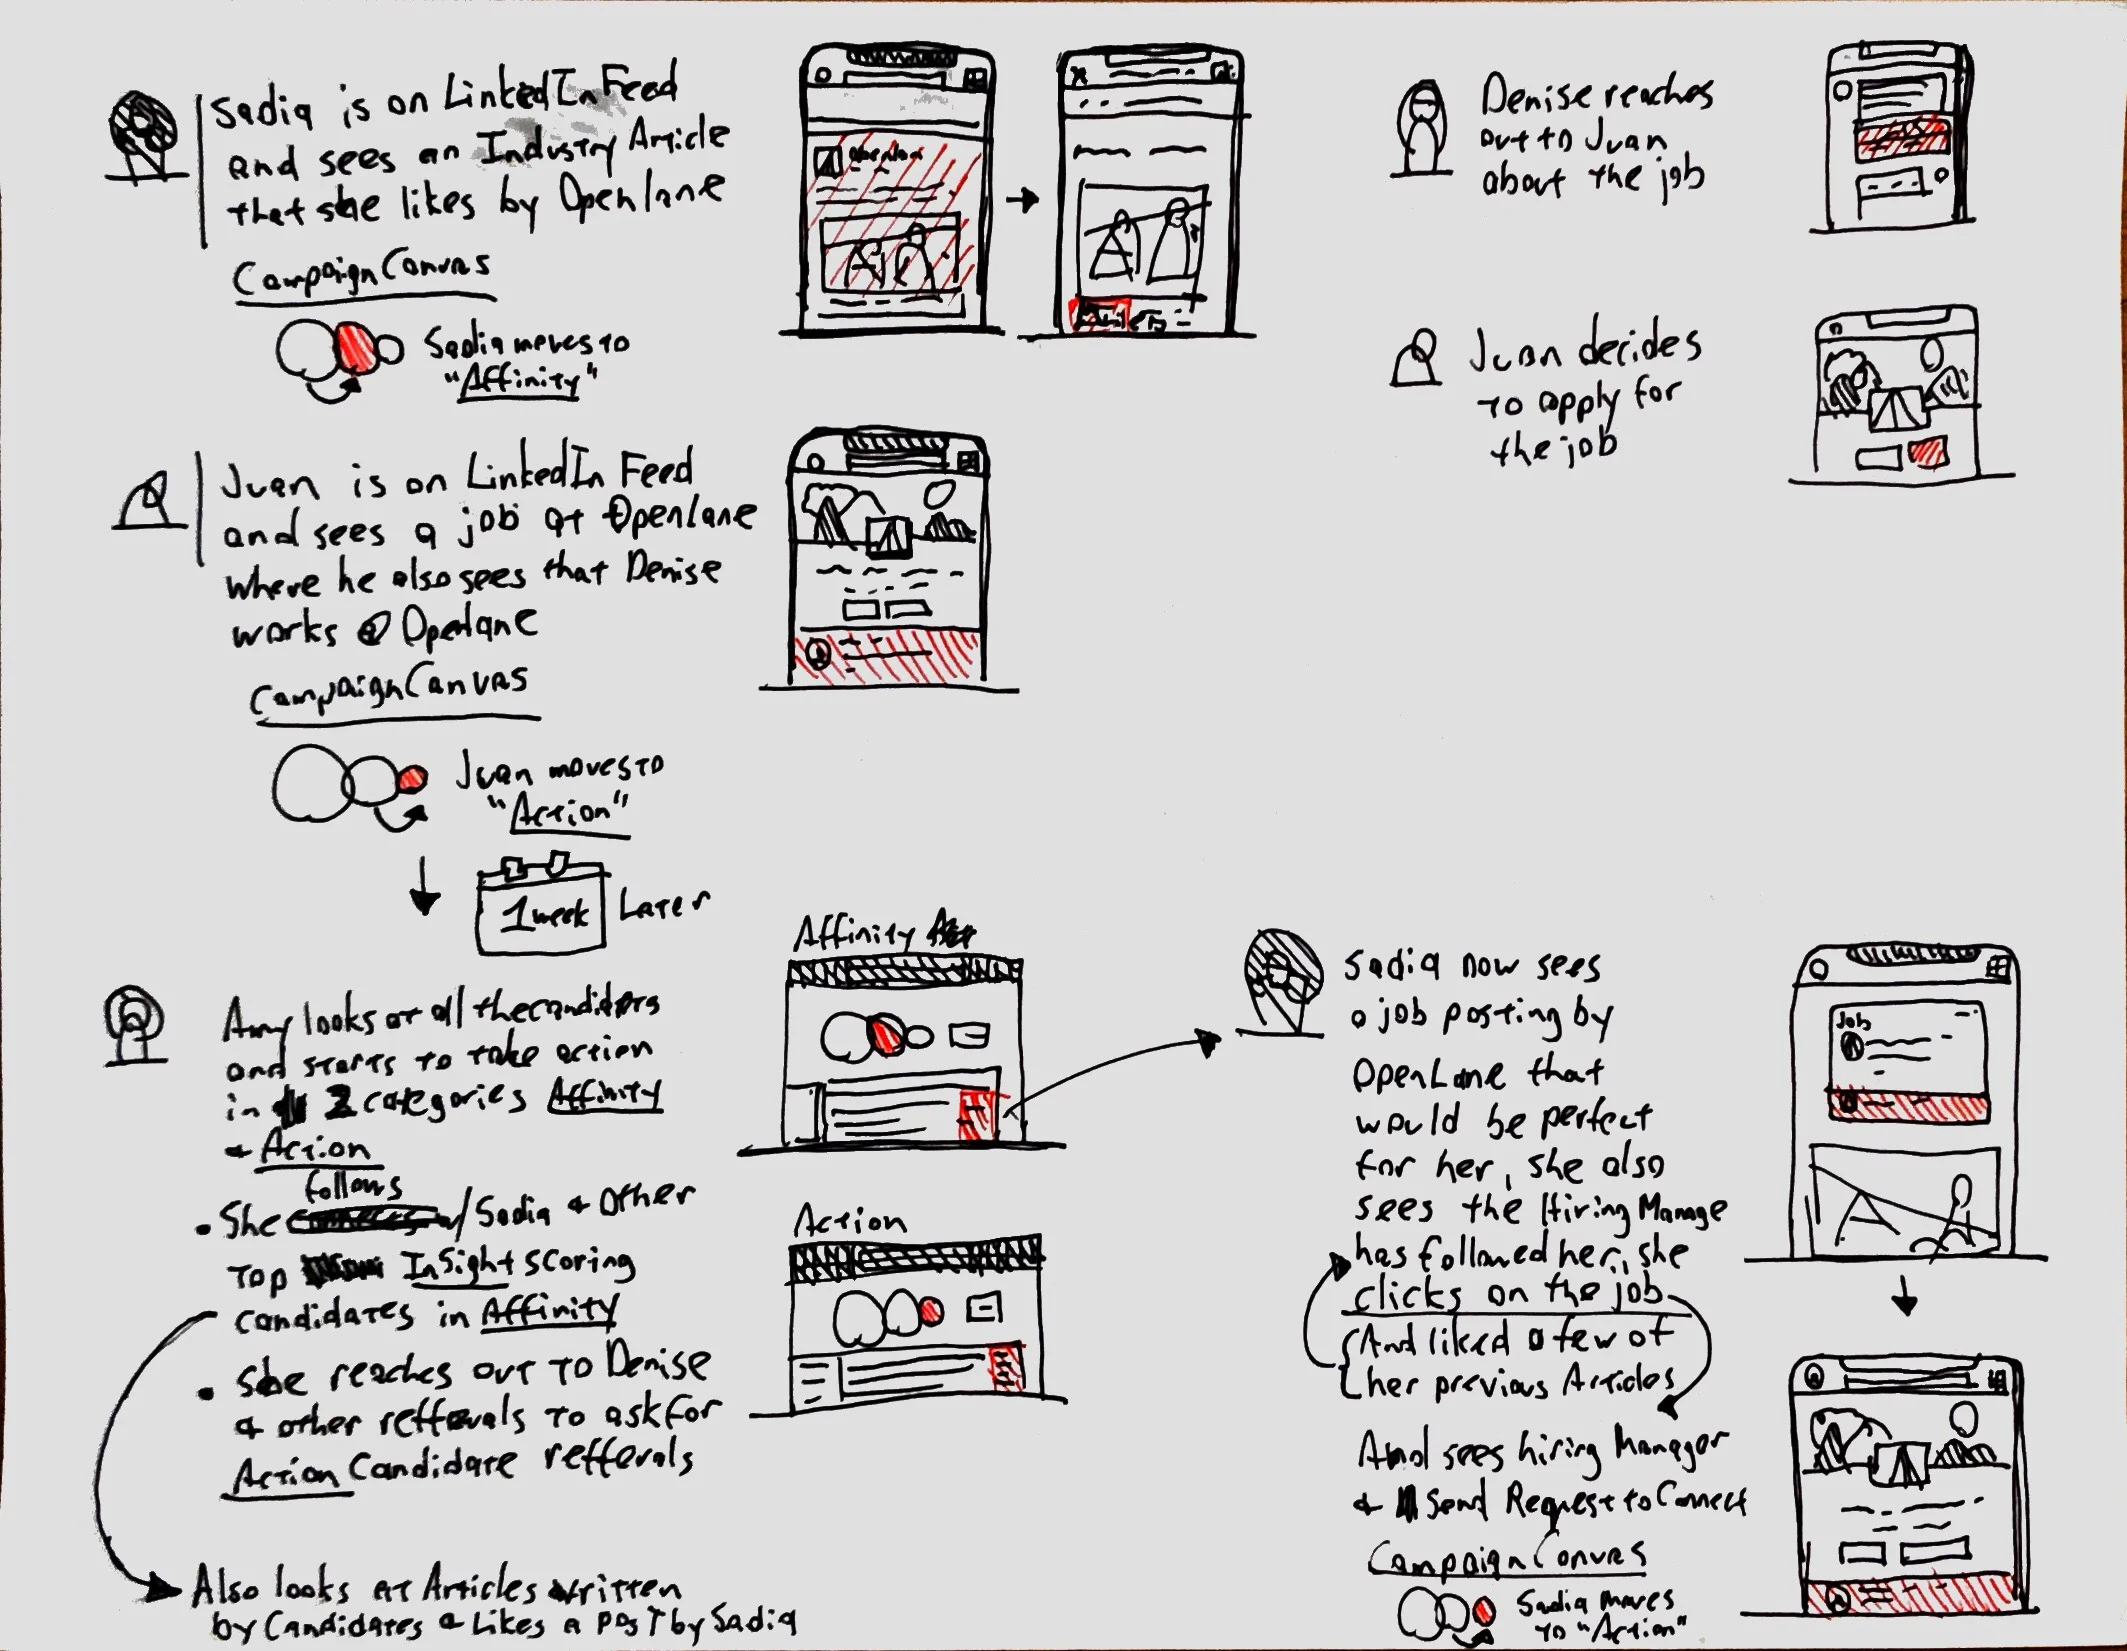 Sadia is on LinkedIn Feed
and sees an Industry Article
that she likes by Openlane
Campaign Canvas
Sadia moves to
"Affinity"
Juan is on LinkedIn Feed
and sees a job at Openlane
where he also sees that Denise
works @ Openlane
Campaign Canvas
Juan moves to
"Action"
1 week Later
Amy looks at all the candidates
and starts to take action
in 2 categories Affinity
+ Action
follows
• She w/ Sadia + Other
Top InSight scoring
candidates in Affinity
• She reaches out to Denise
+ other refferals to ask for
Action Candidate refferals
Also looks at Articles written
by Candidates + Likes a post by Sadia
Openlane
Affinity
Action
Denise reaches
out to Juan
about the job
Juan decides
to apply for
the job
Sadia now sees
a job posting by
OpenLane that
would be perfect
for her, she also
sees the Hiring Manage
has followed her, she
clicks on the job
And liked a few of
her previous Articles
And sees hiring Manager
+ Send Request to Connect
Campaign Canvas
Sadia moves
to "Action"
Job